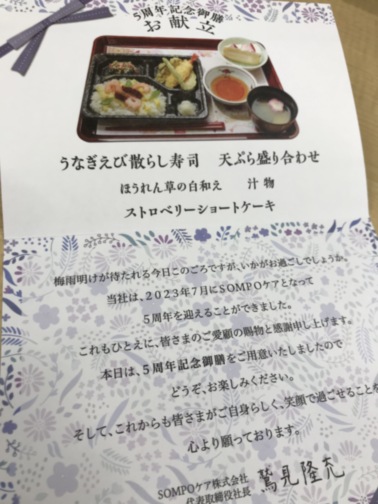 5周年記念御膳
お献立
うなぎえび散らし寿司　天ぷら盛り合わせ
ほうれん草の白和え　汁物
ストロベリーショートケーキ
梅雨明けが待たれる今日このごろですが、いかがお過ごしでしょうか。
当社は、2023年7月にSOMPOケアとなって
5周年を迎えることができました。
これもひとえに、皆さまのご愛顧の賜物と感謝申し上げます。
本日は、5周年記念御膳をご用意いたしましたので
どうぞ、お楽しみください。
そして、これからも皆さまがご自身らしく、笑顔で過ごせることを
心より願っております。
SOMPOケア株式会社
代表取締役社長 鷲見隆充